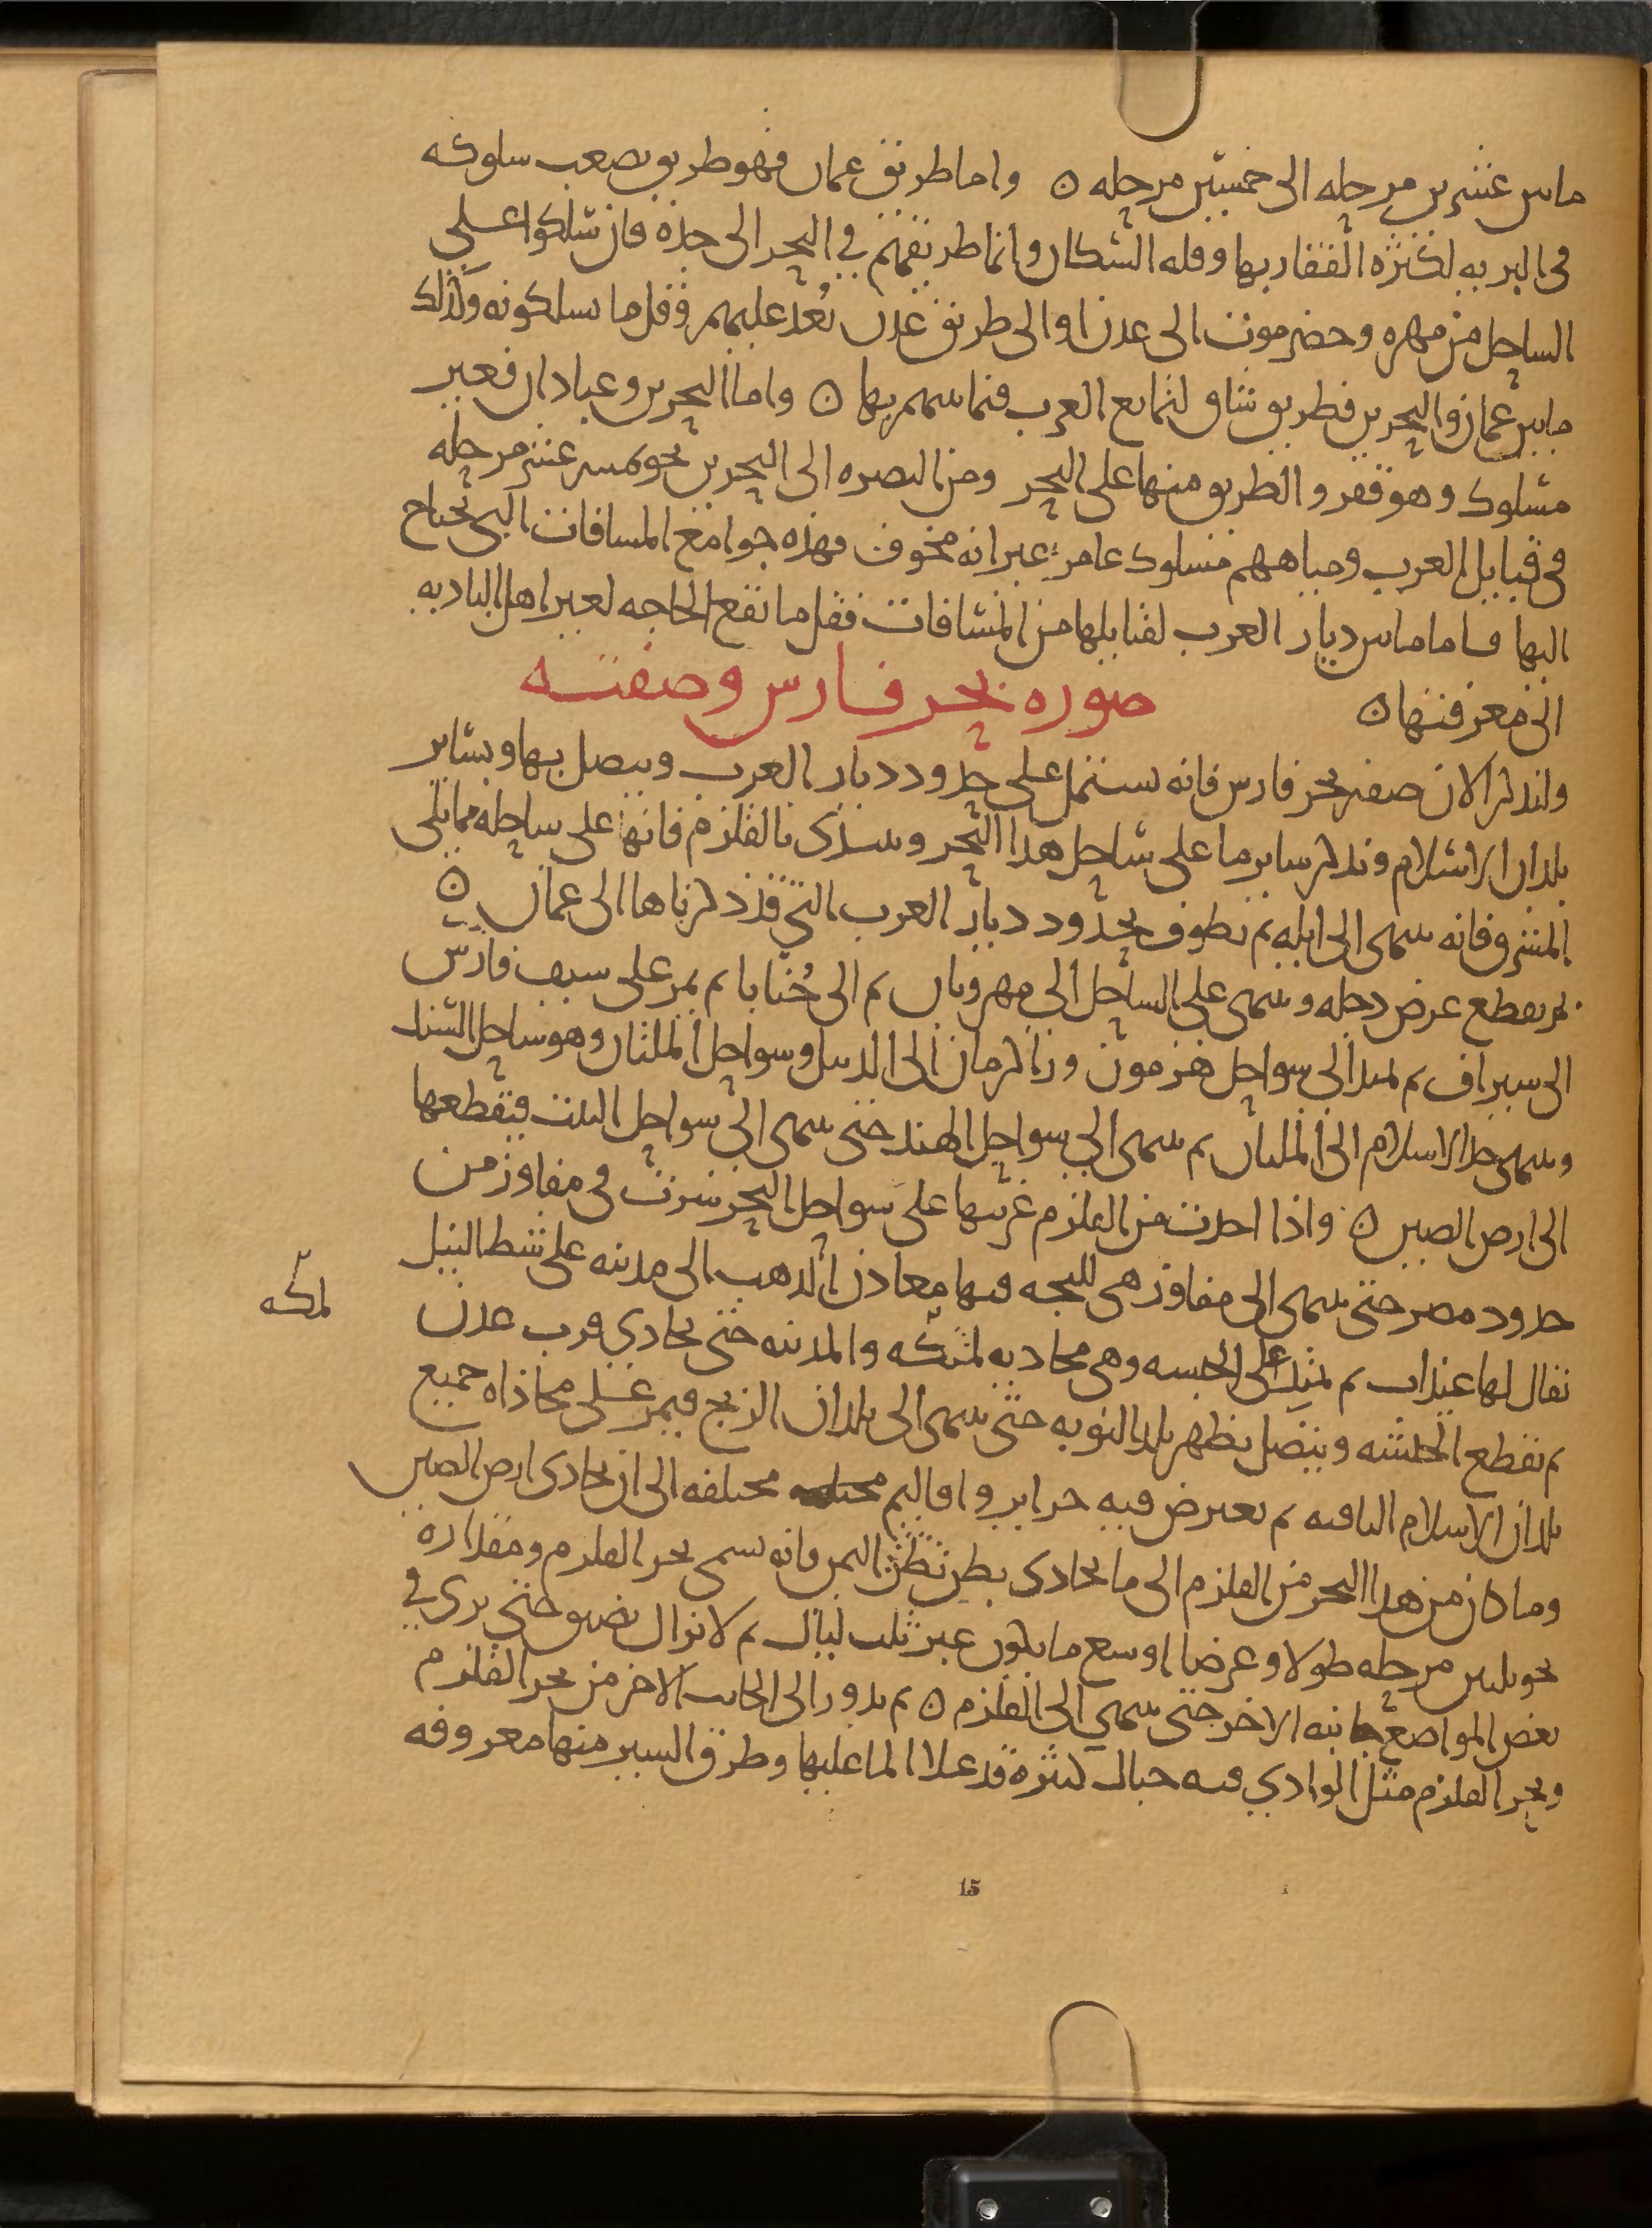 مابين عشرين مرحله الى خمسين مرحله ٥ واما طريق عمان فهو طريق يصعب سلوكه
فى البريه لكثره القفار بها وقله السكان وانما طريقهم في البحر الى جده فان سلكوا على
الساحل من مهره وحضرموت الى عدن او الى طريق عدن بُعد عليهم وقل ما يسلكونه وكذلك
مابين عمان والبحرين فطريق شاق لتمانع العرب فيما بينهم بها ٥ واما البحرين وعبادان فغير
مسلوك وهو قفر والطريق منها على البحر ومن البصره الى البحرين نحو خمسه عشر مرحله
فى قبايل العرب ومياههم مسلوك عامر غير انه مخوف فهذه جوامع المسافات التى يحتاج
اليها فاما مابين ديار العرب لقبايلها من المسافات فقل ما تقع الحاجه لغير اهل الباديه
الى معرفتها ٥
صوره بحر فارس وصفته
ولنذكر الان صفه بحر فارس فانه يشتمل على حدود ديار العرب ويتصل بها وبساير
بلدان الاسلام ونذكر ساير ما على ساحل هذا البحر ونبتدى بالقلزم فانها على ساحله مما يلى
المشرق فانه ينتهى الى ايله ثم يطوف بحدود ديار العرب التي قد ذكرناها الى عمان ٥
ثم يقطع عرض دجله وينتهى على الساحل الى مهروبان ثم الى جُنابا ثم يمر على سيف فارس
الى سيراف ثم يمتد الى سواحل هرموز ورا كرمان الى الديبل وسواحل الملتان وهو ساحل السند
وينتهى حد الاسلام الى الملتان ثم ينتهى الى سواحل الهند حتى ينتهى الى سواحل التبت فيقطعها
الى ارض الصين ٥ واذا اخذت من القلزم غربيها على سواحل البحر سرت فى مفاوز من
حدود مصر حتى ينتهى الى مفاوز هى للبجه وبها معادن الذهب الى مدينه على شط النيل
لمكه
يقال لها عيذاب ثم يمتد على الحبسه وهى محاذيه لمكه والمدينه حتى يحاذي قرب عدن
ثم يقطع الحبشه ويتصل بظهر بلد النوبه حتى ينتهى الى بلدان الزنج فيمر على محاذاه جميع
بلدان الاسلام الباقيه ثم تعترض فيه جزاير واقاليم مختلفه الى ان يحاذى ارض الصين
وما كان من هذا البحر من القلزم الى ما يحاذى بطن اليمن فانه يسمى بحر القلزم ومقداره
نحو ثلثين مرحله طولا وعرضا اوسع ما يكون عبر ثلث ليال ثم لا يزال يضيق حتى يرى في
بعض المواضع جانبه الاخر حتى ينتهي الى القلزم ٥ ثم يدور الى الجانب الاخر من بحر القلزم
وبحر القلزم مثل الوادي فيه جبال كثيرة قد علا الما عليها وطرق السير منها معروفه
15